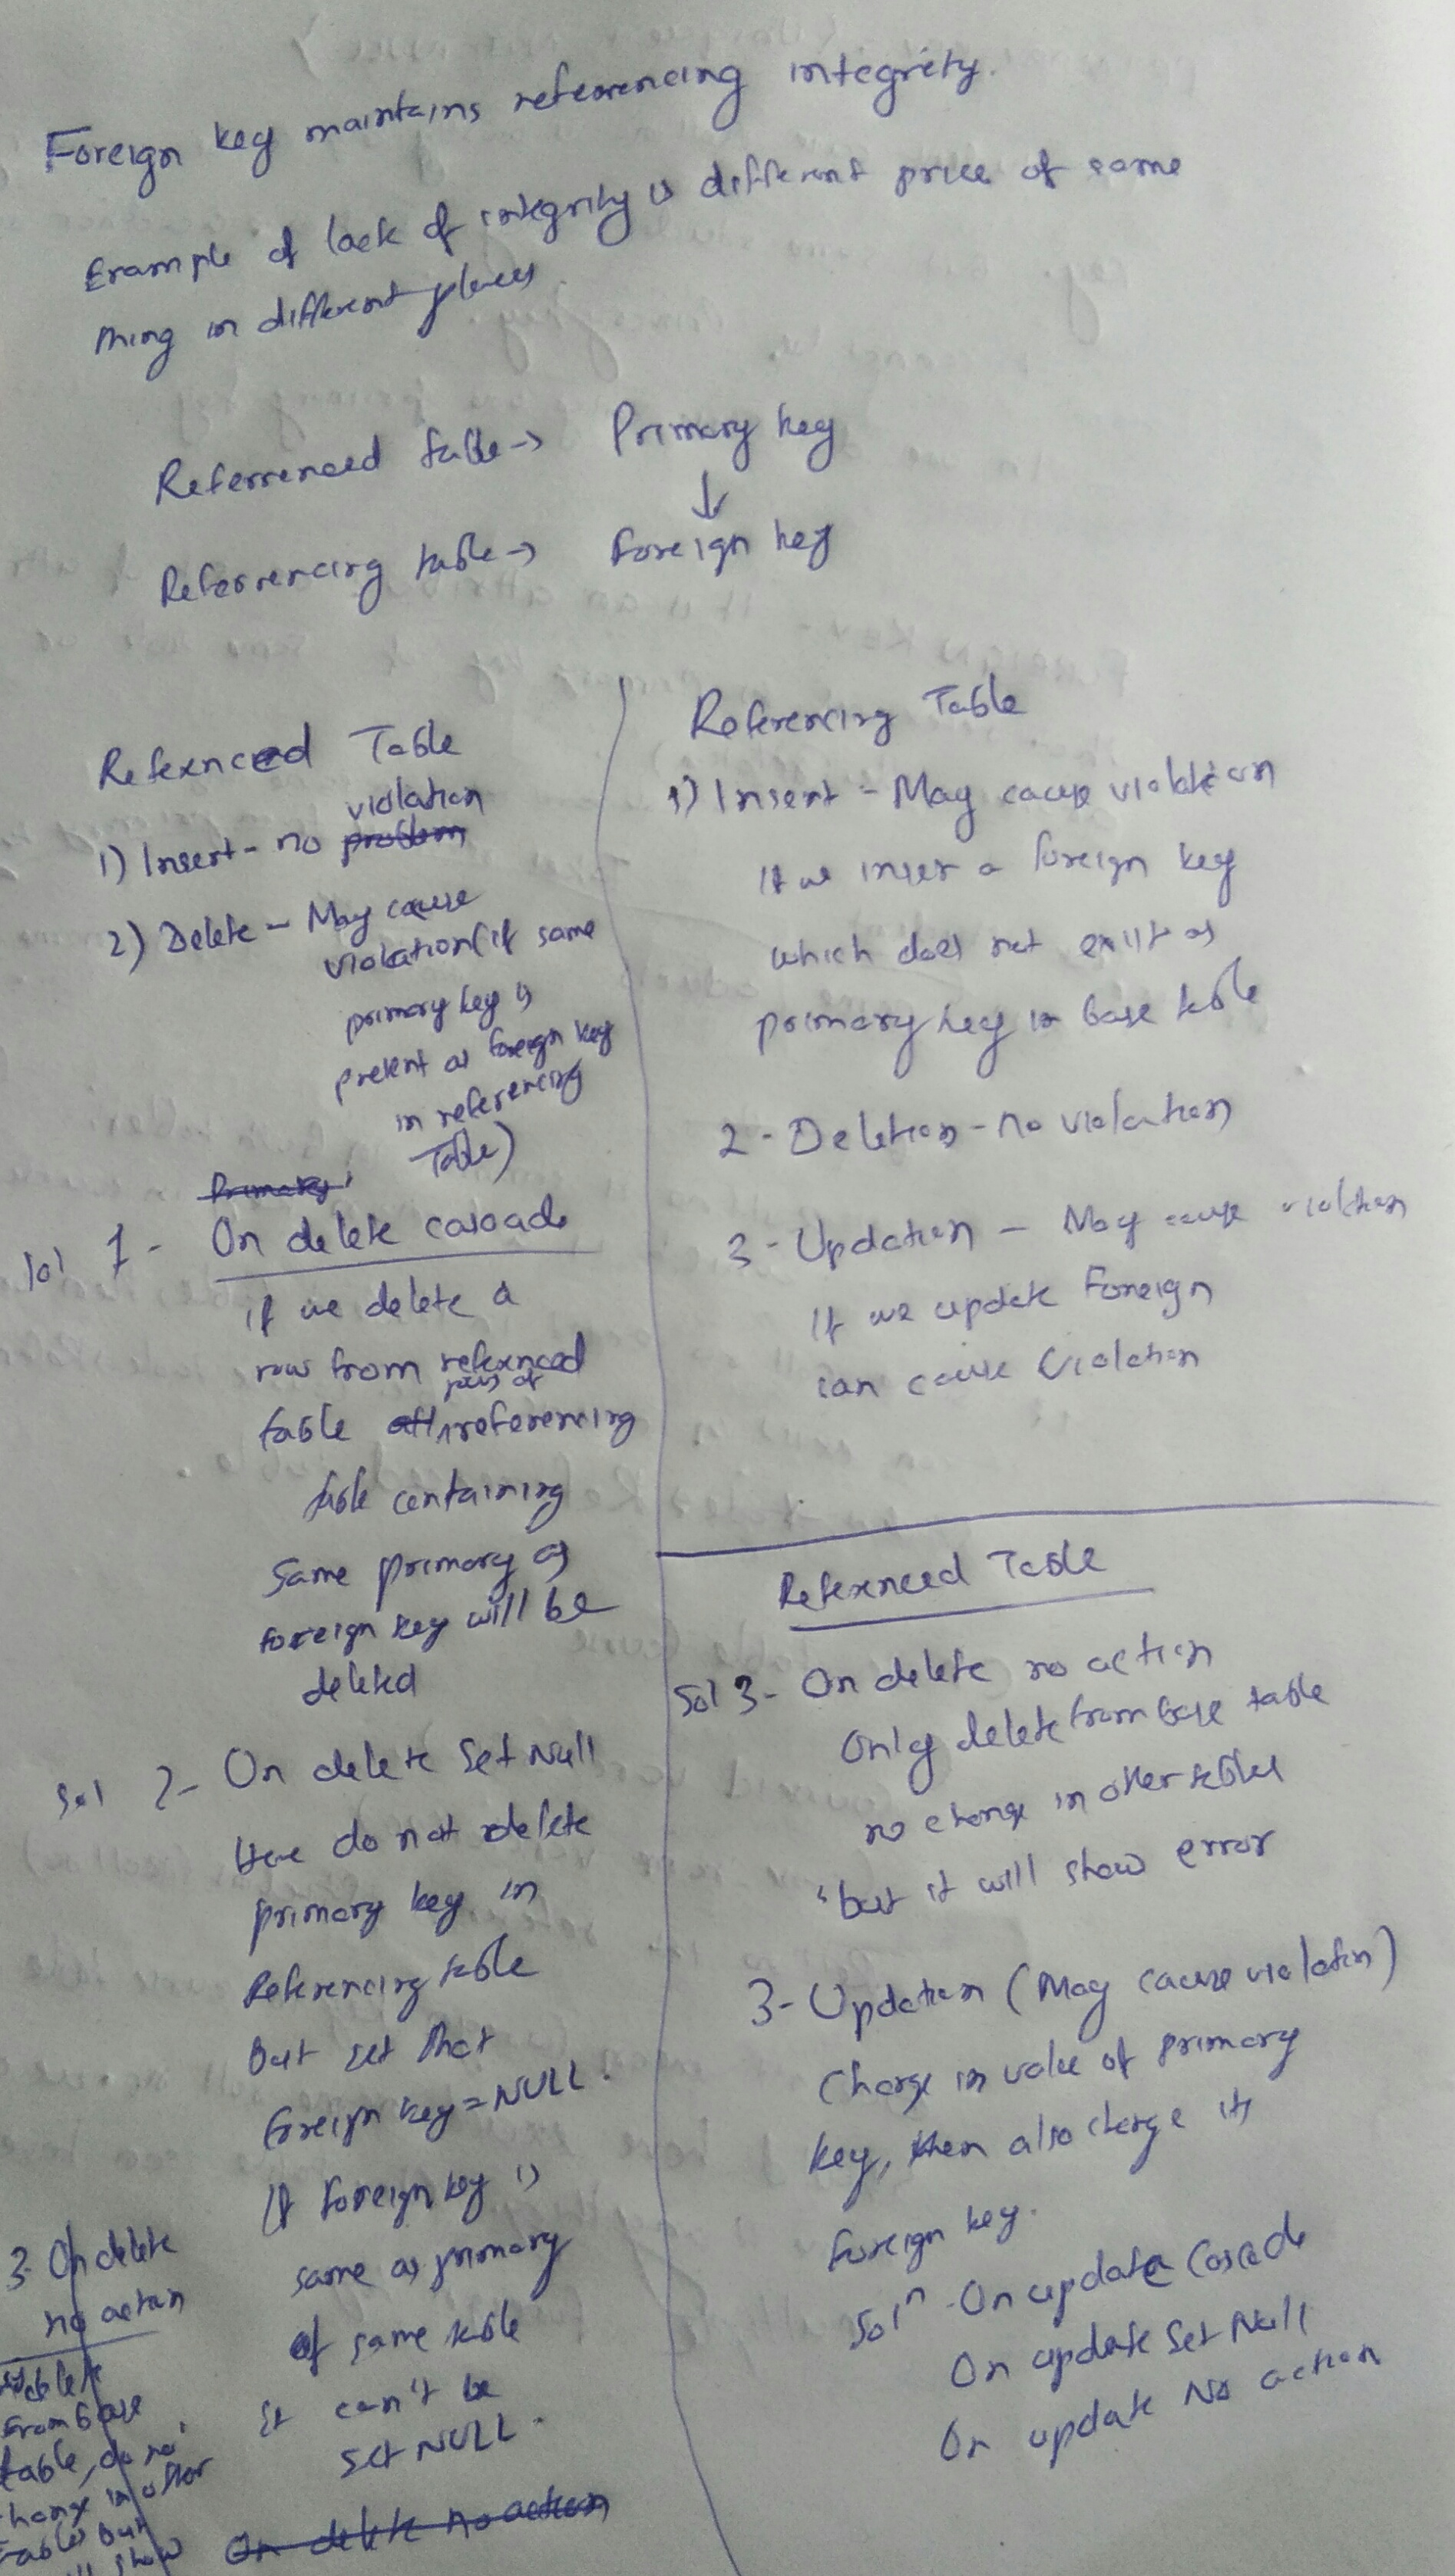 Foreign key maintains referencing integrity.
Example of lack of integrity is different price of same
thing in different places
Referrenced table → Primary key
↓
Referrencing table → Foreign key
Refernced Table
1) Insert - no problem violation
2) Delete - May cause
violation (if same
primary key is
present as foreign key
in referencing
Table)
Primary
sol 1 - On delete cascade
if we delete a
row from refernced
table all rows of referencing
table containing
same primary as
foreign key will be
deleted
Sol 2 - On delete set Null
Here do not delete
primary key in
Referencing table
but set that
foreign key = NULL.
If foreign key is
same as primary
of same table
it can't be
set NULL.
On delete No action
3. On delete
no action
delete
from base
table, do no
change in other
tables but
show
Referencing Table
1) Insert - May cause violation
If we inser a foreign key
which does not exist as
primary key in base table
2 - Deletion - no violation
3 - Updation - May cause violation
If we update Foreign
can cause violation
Refernced Table
Sol 3 - On delete no action
Only delete from base table
no change in other tables
but it will show error
3 - Updation (May cause violation)
Change in value of primary
key, then also change its
foreign key.
Solⁿ - On update Cascade
On update Set Null
On update No action